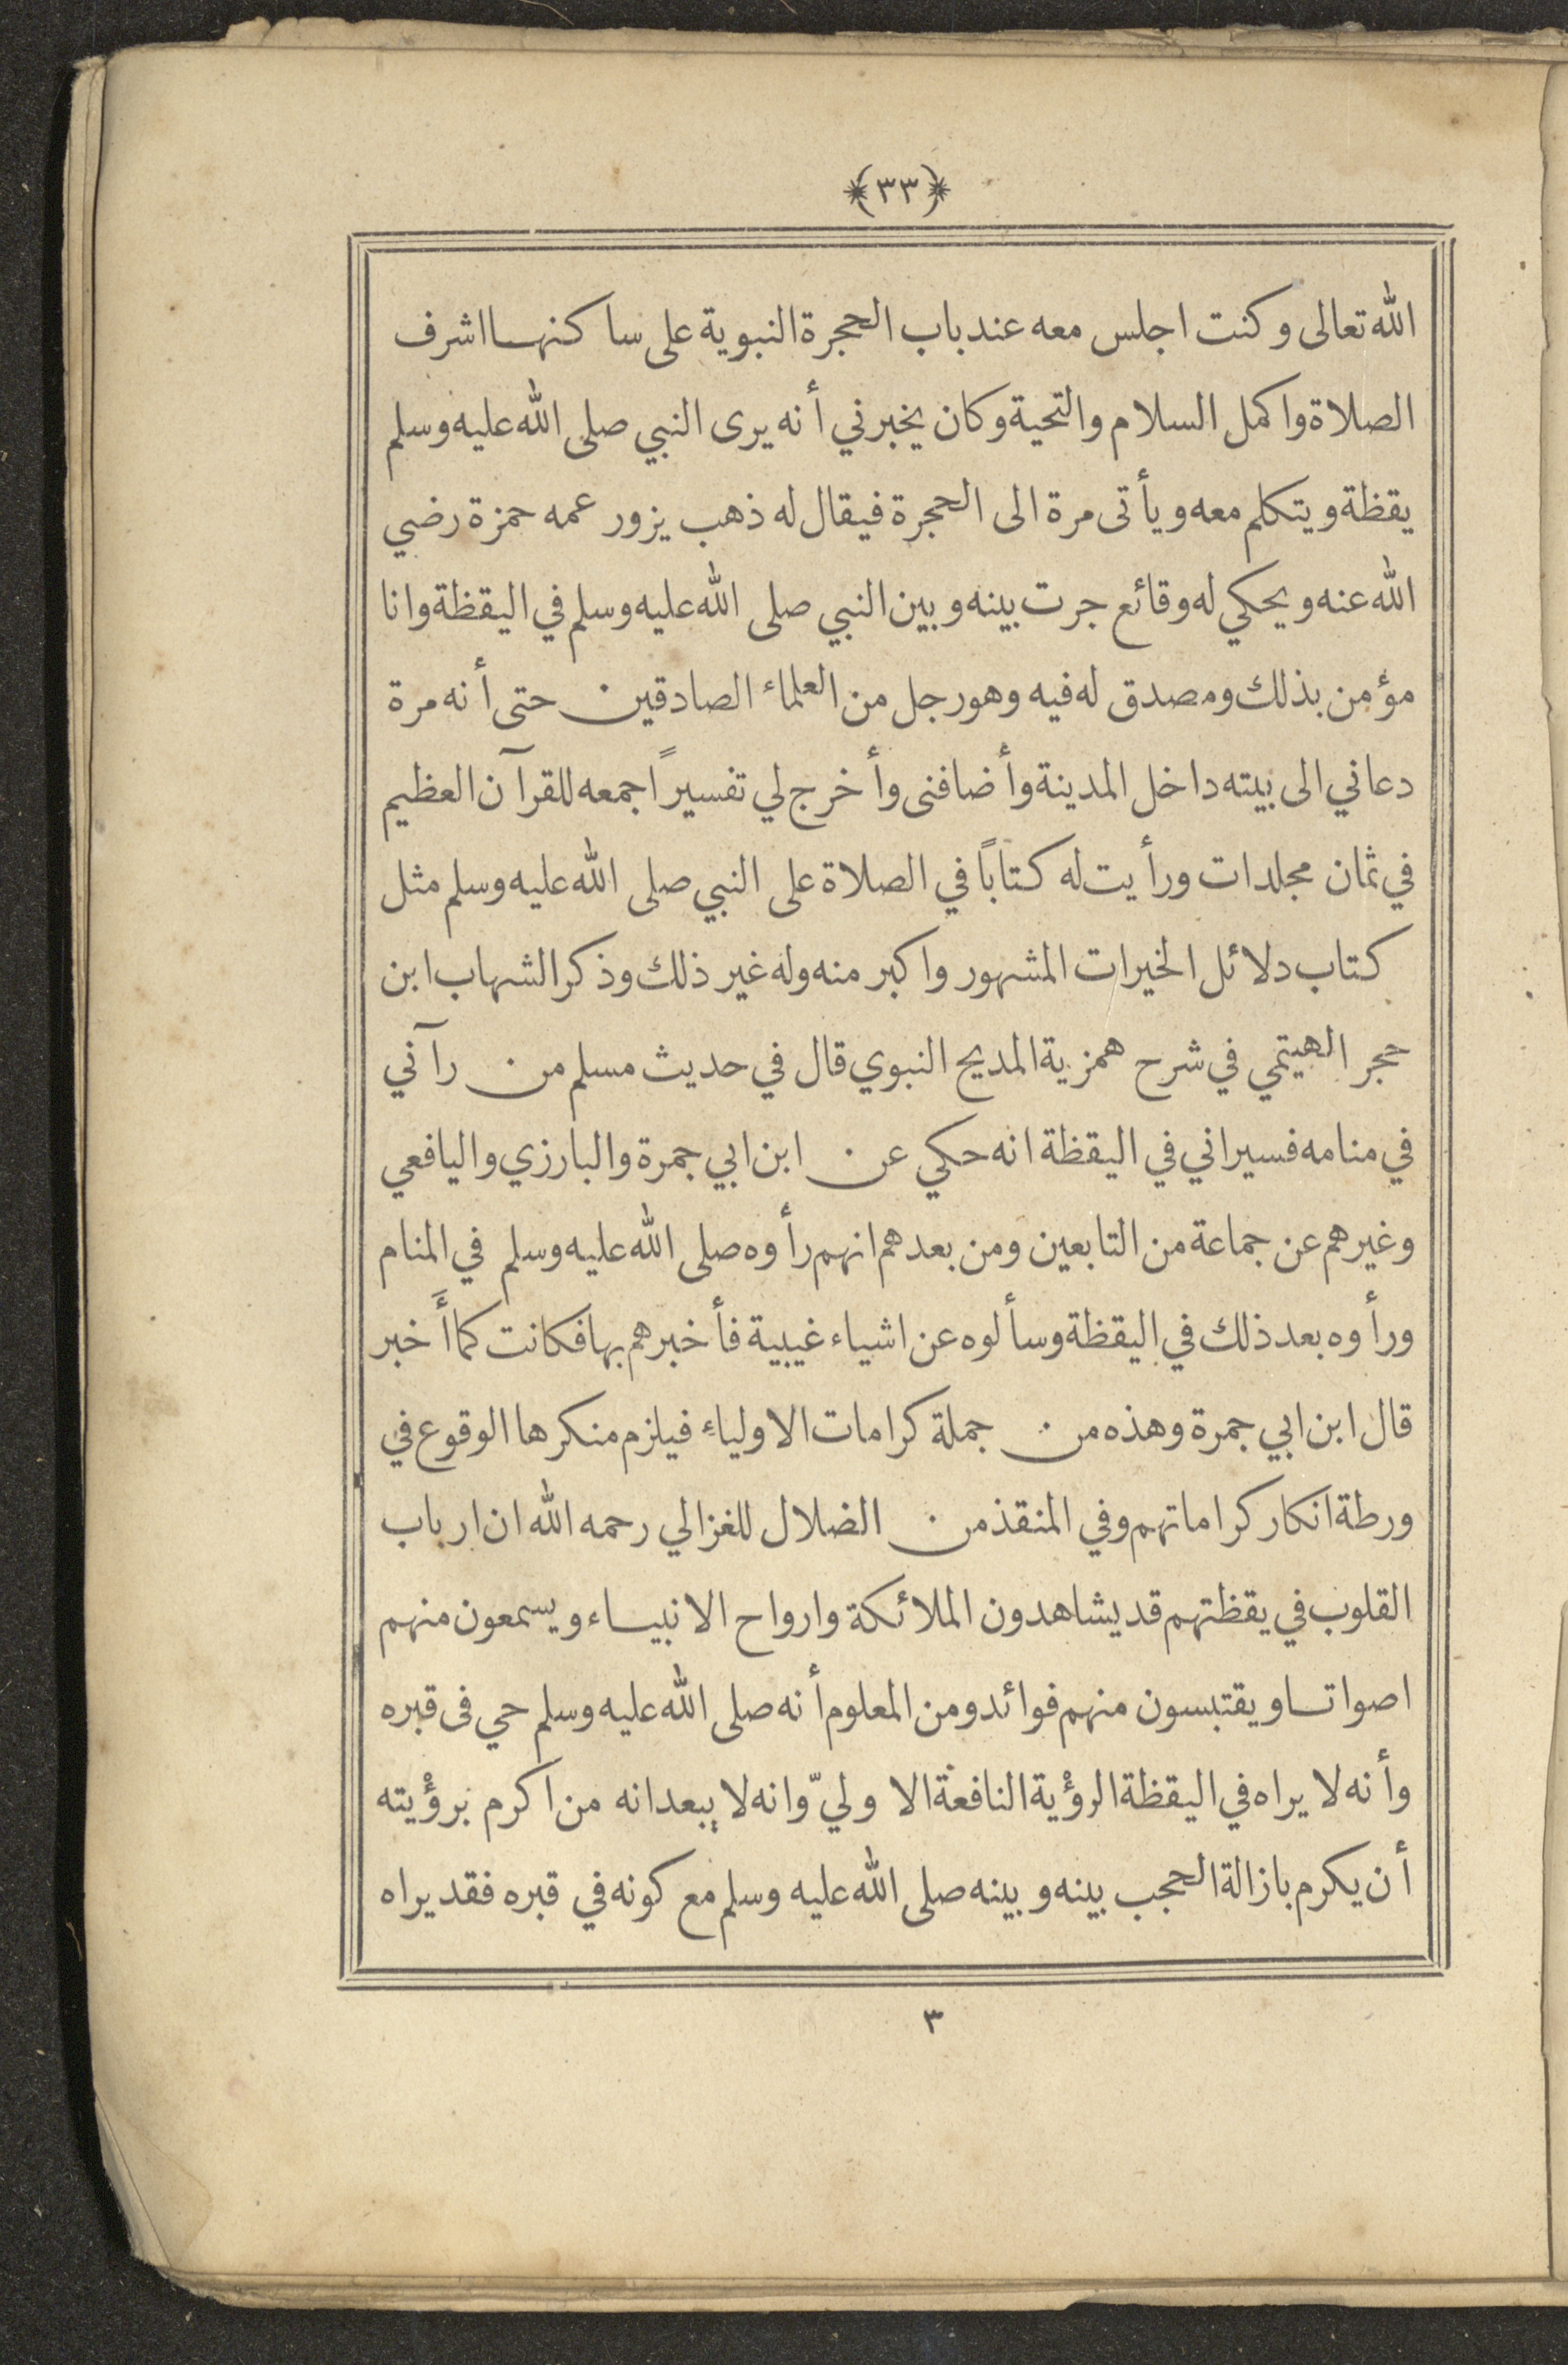 ﴿٣٣﴾
الله تعالى وكنت اجلس معه عند باب الحجرة النبوية على ساكنها اشرف
الصلاة واكمل السلام والتحية وكان يخبرني أنه يرى النبي صلى الله عليه وسلم
يقظة ويتكلم معه ويأتى مرة الى الحجرة فيقال له ذهب يزور عمه حمزة رضي
الله عنه ويحكي له وقائع جرت بينه وبين النبي صلى الله عليه وسلم في اليقظة وانا
مؤمن بذلك ومصدق له فيه وهو رجل من العلماء الصادقين حتى أنه مرة
دعاني الى بيته داخل المدينة وأضافنى وأخرج لي تفسيرًا جمعه للقرآن العظيم
في ثمان مجلدات ورأيت له كتابًا في الصلاة على النبي صلى الله عليه وسلم مثل
كتاب دلائل الخيرات المشهور واكبر منه وله غير ذلك وذكر الشهاب ابن
حجر الهيتمي في شرح همزية المديح النبوي قال في حديث مسلم من رآني
في منامه فسيراني في اليقظة انه حكي عن ابن ابي جمرة والبارزي واليافعي
وغيرهم عن جماعة من التابعين ومن بعدهم انهم رأوه صلى الله عليه وسلم في المنام
ورأوه بعد ذلك في اليقظة وسألوه عن اشياء غيبية فأخبرهم بها فكانت كما أَخبر
قال ابن ابي جمرة وهذه من جملة كرامات الاولياء فيلزم منكرها الوقوع في
ورطة انكار كراماتهم وفي المنقذ من الضلال للغزالي رحمه الله ان ارباب
القلوب في يقظتهم قد يشاهدون الملائكة وارواح الانبياء ويسمعون منهم
اصواتا ويقتبسون منهم فوائد ومن المعلوم أنه صلى الله عليه وسلم حي فى قبره
وأنه لا يراه في اليقظة الرؤْية النافعة الا وليّ وانه لا يبعد انه من اكرم برؤْيته
أن يكرم بازالة الحجب بينه وبينه صلى الله عليه وسلم مع كونه في قبره فقد يراه
٣